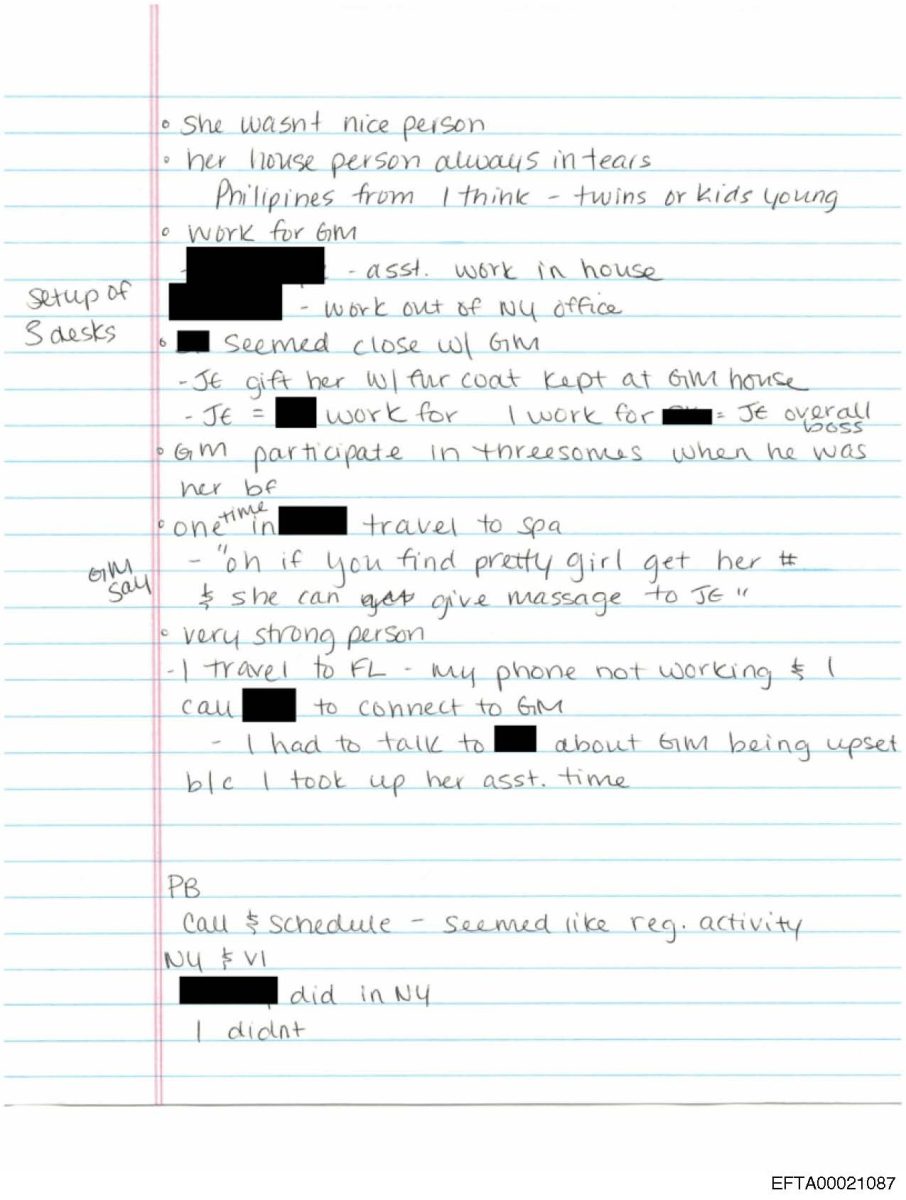 • she wasnt nice person
• her house person always in tears
Philipines from I think - twins or kids young
• work for GM
- - asst. work in house
setup of 3 desks
- work out of NY office
• seemed close w/ GM
- JE gift her w/ fur coat kept at GM house
- JE = work for I work for = JE overall boss
• GM participate in threesomes when he was
her bf
• one time in travel to spa
GM say
- "oh if you find pretty girl get her #
& she can get give massage to JE"
• very strong person
- I travel to FL - my phone not working & I
call to connect to GM
- I had to talk to about GM being upset
b/c I took up her asst. time
PB
Call & schedule - seemed like reg. activity
NY & VI
did in NY
I didnt
EFTA00021087